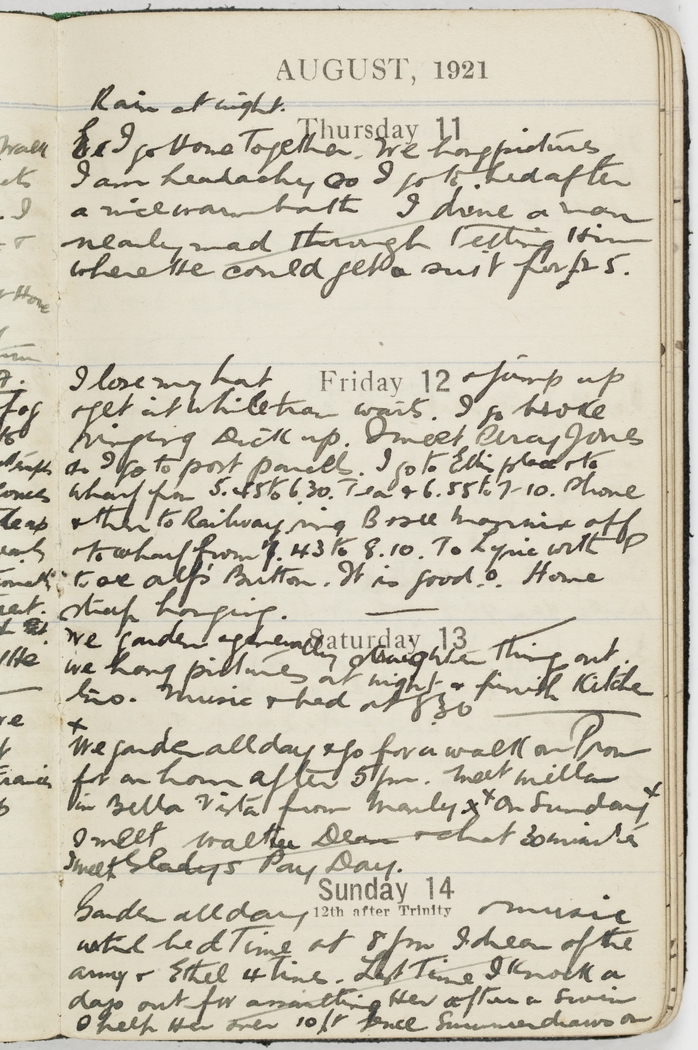 AUGUST, 1921
Rain at night.
Thursday 11
I go Home Together. We hang pictures
I am headachy so I go to bed after
a nice warm bath I drive a man
nearly mad through Telling Him
where He could get a suit for
I lose my hat Friday 12 & jump up
& get it while tram waits. I go
ringing Dick up. I meet Percy Jones
so I go to post parcels. I go to Ellis place & to
wharf from 5.45 to 6.30. Tea & 6.55 to 7-10. Phone
& then to Railway, ring off
& to wharf from 7.43 to 8.10. To Lyric with P
to see Alf's Button. It is good. Home
hanging.
We garden generally straighten Thing out
Saturday 13
we hang pictures at night & finish Kitchen
Music & bed at 8.30
We garden all day & go for a walk on Prom
for an hour after 5 pm. Meet
in Bella Vista from Manly x x on Sunday x
I meet Walter Dean & chat 30 minutes
I meet Gladys Pay Day.
Sunday 14
12th after Trinity
Garden all day & music
until bed Time at 8 pm I dream of the
army & Ethel 4 times. Last Time I Knock a
out for assaulting Her after a Swim
& help Her over 10 ft fence on